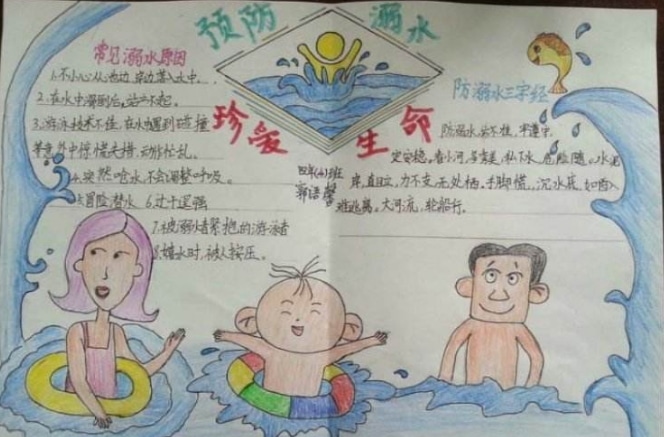 预防溺水
珍爱生命
常见溺水原因
1.不小心从池边、岸边落入水中。
2.在水中滑倒后,站不起。
3.游泳技术不佳,在水中遇到碰撞
等意外中惊慌失措,动作忙乱。
4.突然呛水,不会调整呼吸。
5.冒险潜水 6.过于逞强
7.被溺水者紧抱的游泳者
8.嬉水时,被人按压。
四年(4)班
郭语馨
防溺水三字经
防溺水,牢遵守。
定安稳。看小河,多变美,私下水,危险随。水泥
岸,直且立,力不支,无处栖。手脚慌,沉水底,如西
难逃离。大河流,轮船行。